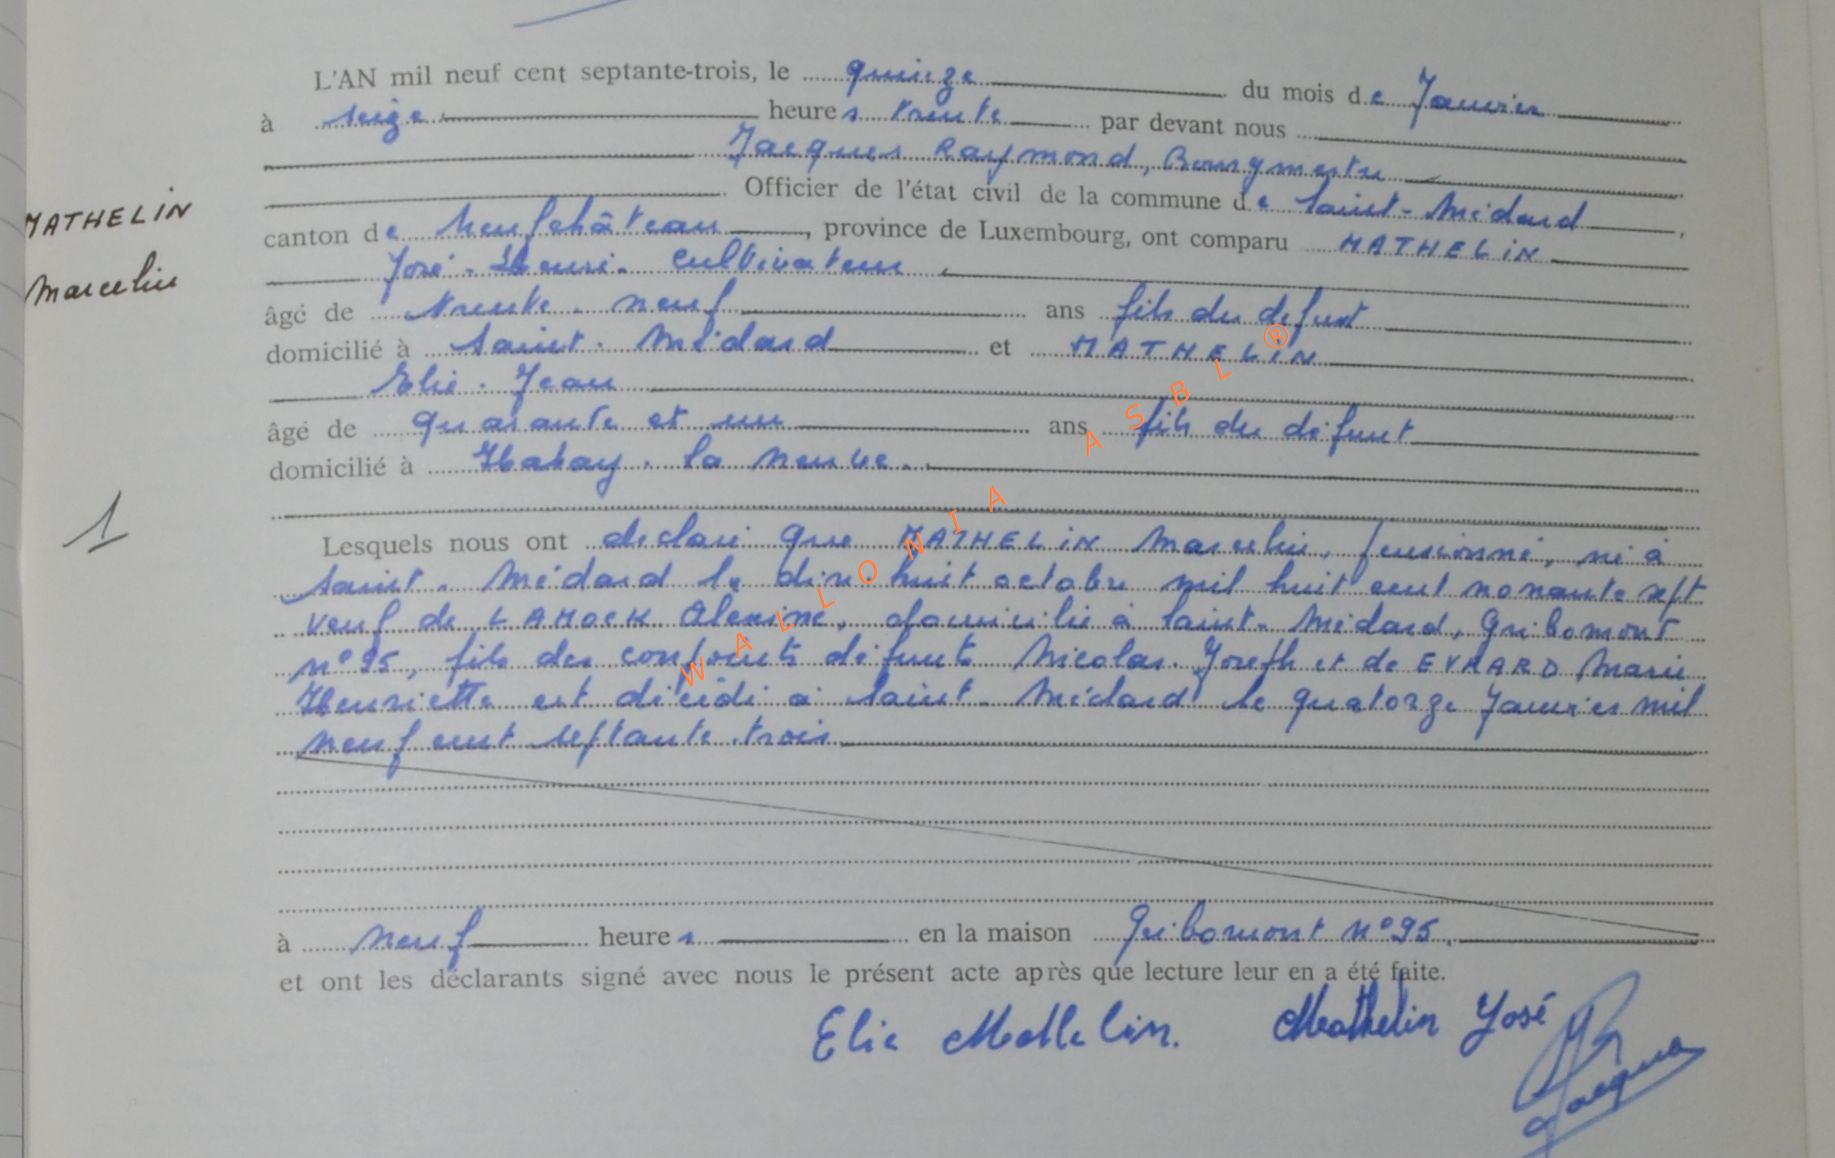 L'AN mil neuf cent septante-trois, le quinze du mois de Janvier
à seize heures trente par devant nous
Jacques Raymond, Bourgmestre
Officier de l'état civil de la commune de Saint-Médard,
MATHELIN
canton de Neufchâteau, province de Luxembourg, ont comparu MATHELIN
José-Henri. cultivateur
Marcelin
âgé de trente-neuf ans fils du défunt
domicilié à Saint-Médard et MATHELIN
Elie-Jean
âgé de quarante et un ans fils du défunt
domicilié à Habay-la-Neuve.
1
Lesquels nous ont déclaré que MATHELIN Marcelin, pensionné, né à
Saint-Médard le dix-huit octobre mil huit cent nonante sept
veuf de LAMOCK Alexine, domicilié à Saint-Médard, Gribomont
n°95, fils des conjoints défunts Nicolas-Joseph et de EVRARD Marie
Henriette est décédé à Saint-Médard le quatorze Janvier mil
neuf cent septante-trois
à neuf heures en la maison Gribomont n°95.
et ont les déclarants signé avec nous le présent acte après que lecture leur en a été faite.
Elie Mathelin. Mathelin José
Jacques
WALLONIA ASBL ®